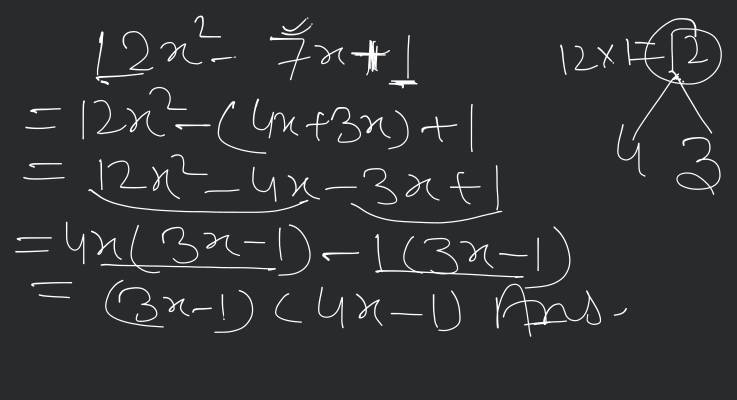 12x² - 7x + 1
12 × 1 = 12
4 3
= 12x² - (4x + 3x) + 1
= 12x² - 4x - 3x + 1
= 4x(3x - 1) - 1(3x - 1)
= (3x - 1) (4x - 1) Ans.